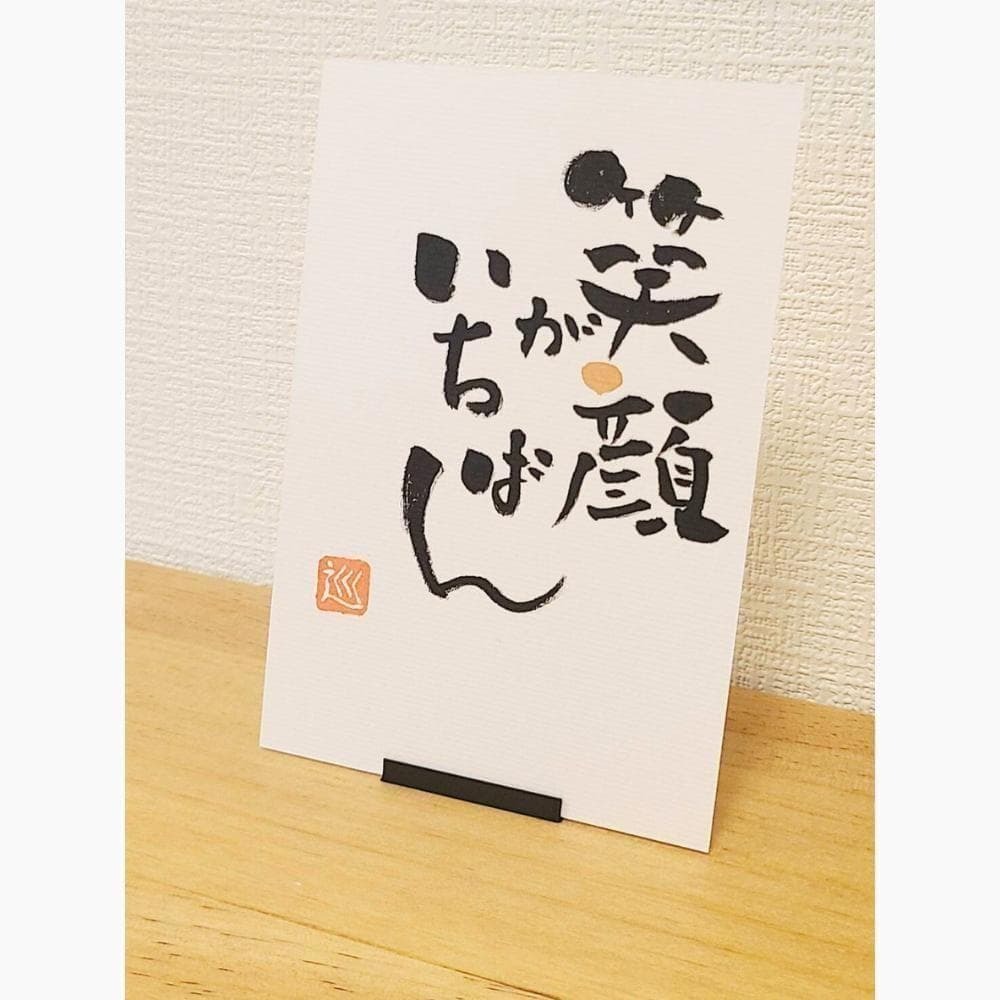 笑顔が
いちばん
巡